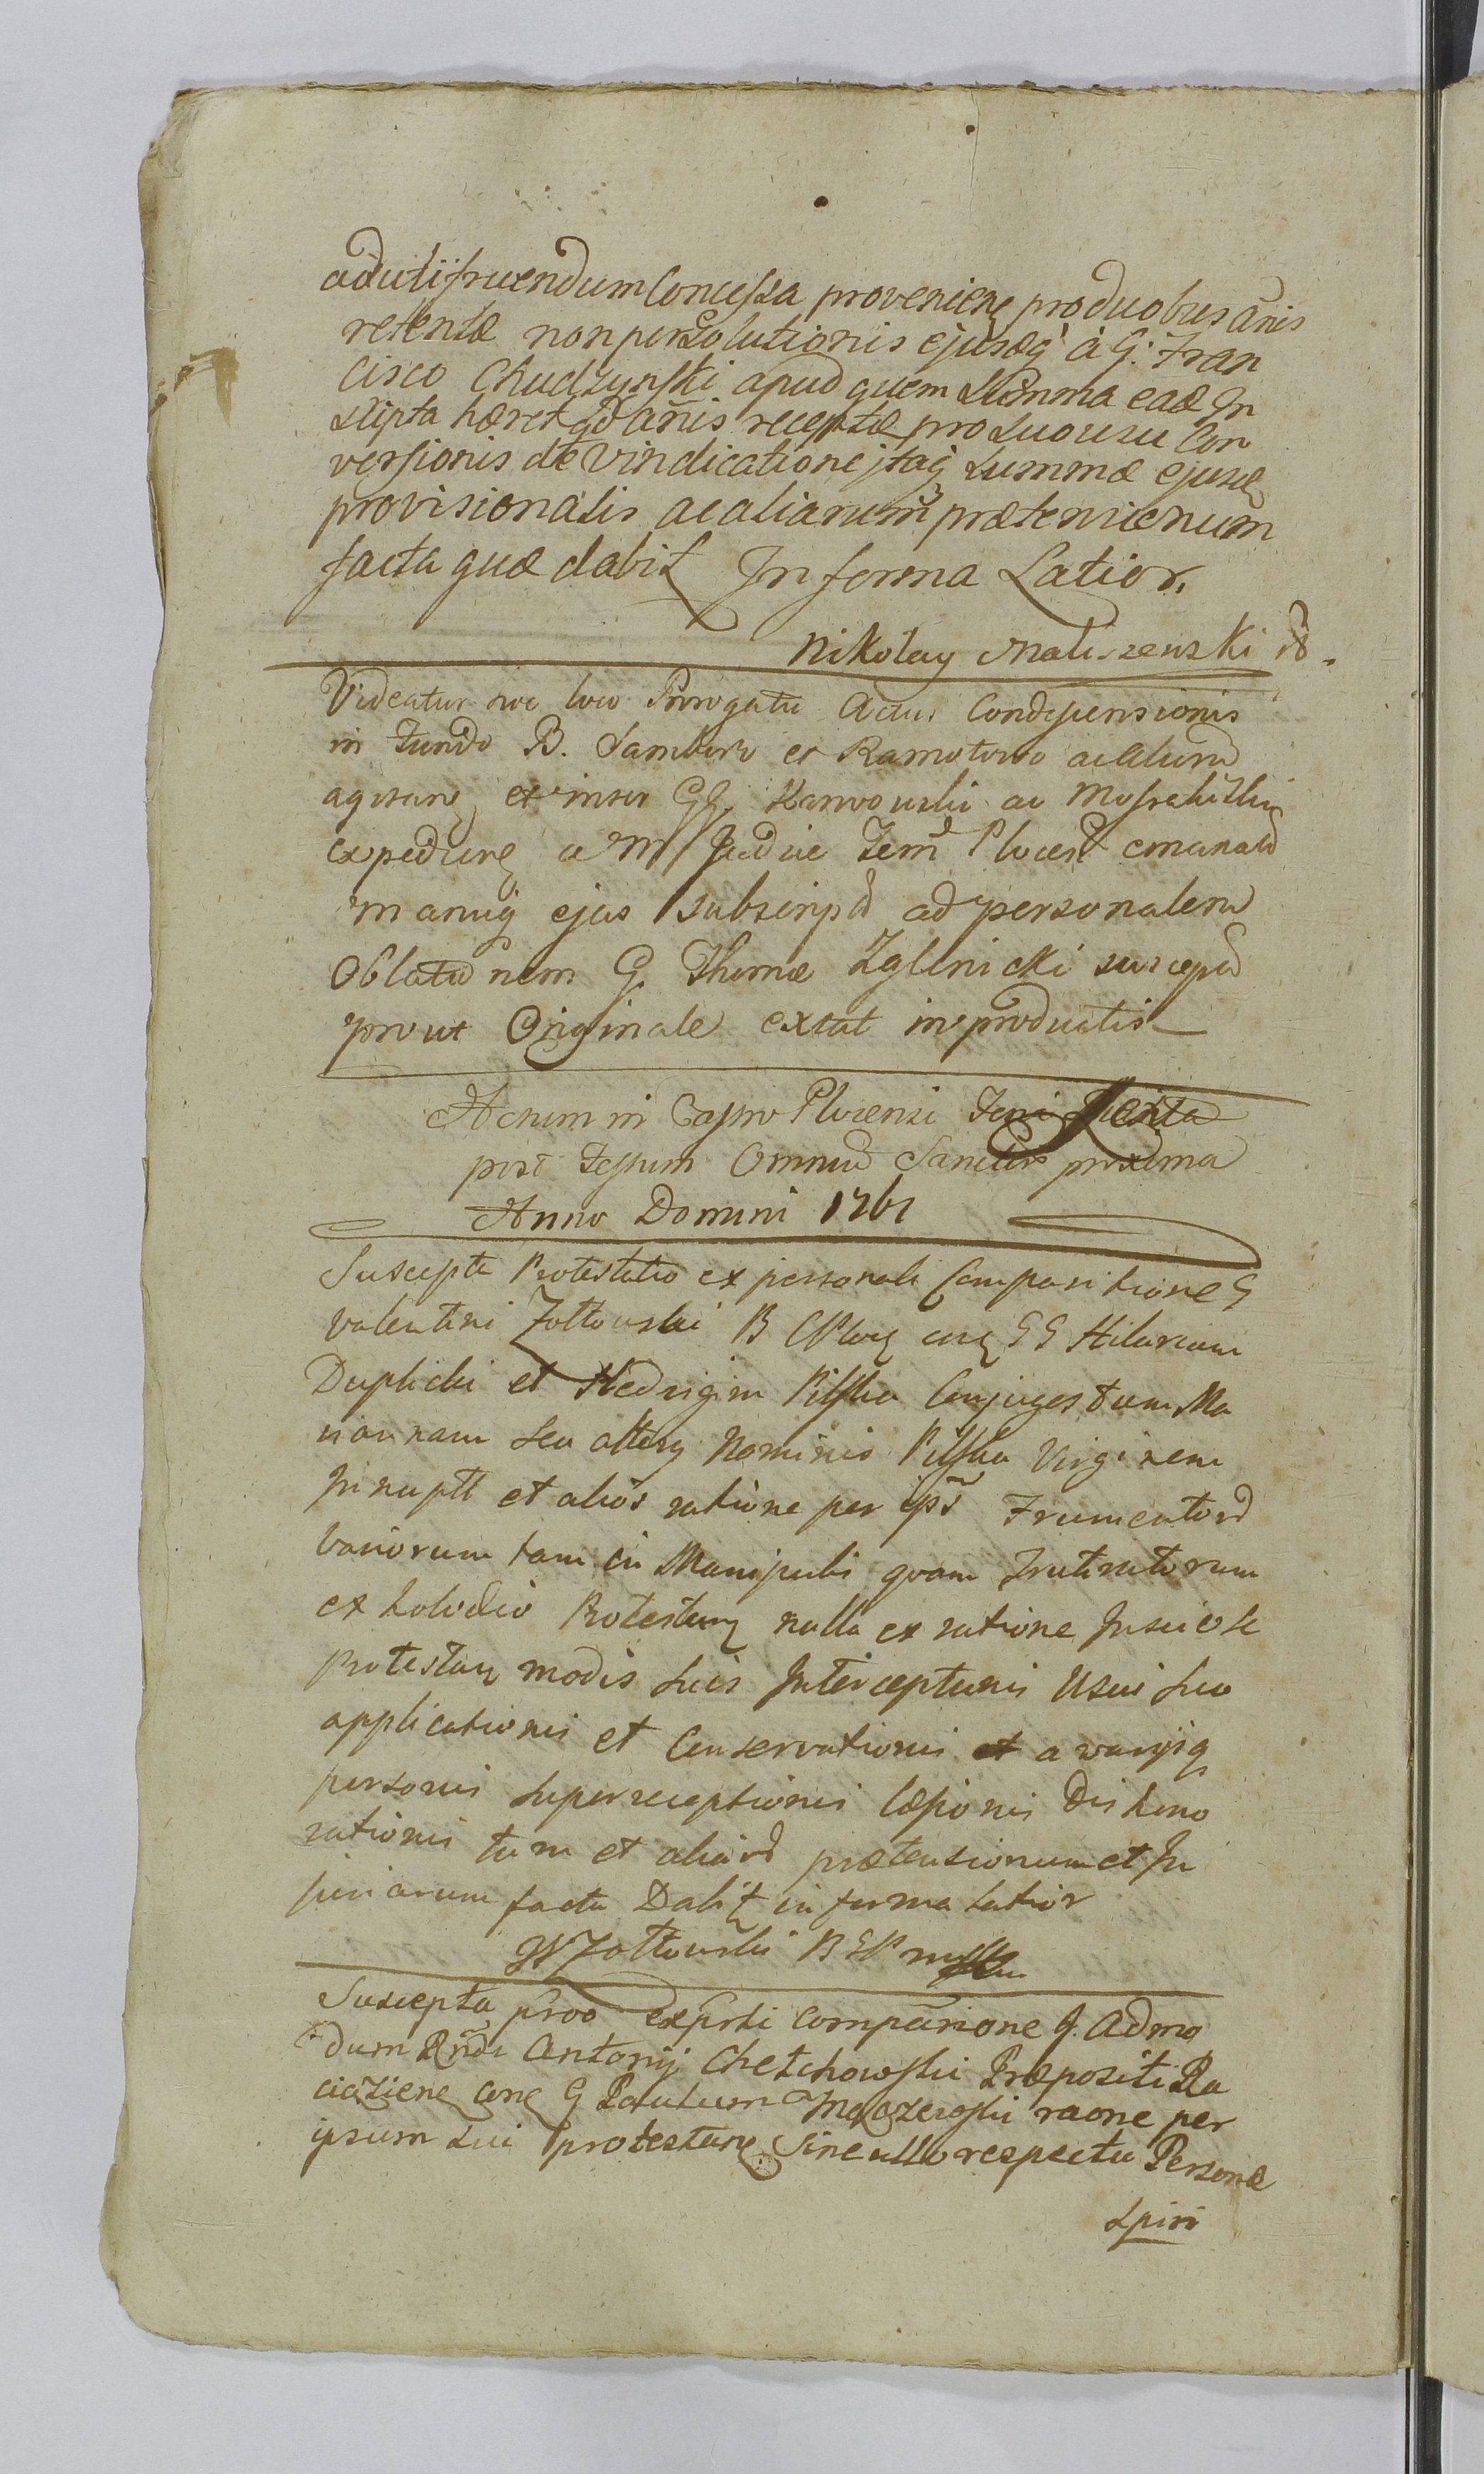 ad utifruendum Concessa provenienę pro duobus añis
retentæ non persolutionis ejusqꝫ à G. Fran
cisco Chudzynski apud quem Summa eadē In
scripta hæret qd añis receptæ pro suo usu Con
versionis de Vindicatione itaqꝫ Summæ ejusdē
provisionalis ac aliarum prætensienum
facta quæ dabit In forma Latior.
Nikolay Maliszewski
Videatur hoc loco Prorogatū Actus Condescensionis
in fundo B. Sambory et Ramotowo ac aliorū
agitanę et inter GG. Karwowski ac
expedienę a M Judice Terrū Plocen emanatū
manuqꝫ ejus subscriptū ad personalem
Oblatūnem G. Thomæ Zglinicki susceptū
prout Originale extat in productis
Actum in Castro Plocensi Feria Sexta
post Festum Omniū Sanctorū proxima
Anno Domini 1761
Suscepta Protestatio ex personali Comparitione G
Valentini Zołtowski B C Ploc conę GG Hilarium
Duplicki et Hedvigim Pilska Conjuges tum Ma
riannam seu alterę Nominis Pilska Virginem
Innuptt et alios ratione per ips Frumentorū
variorum tam in Manipuli quam Trituratorum
ex Protestanę nulla ex ratione Inscio se
protestanę modis suis Interceptionis Usui suo
applicationis et Conservationis et a varijsqꝫ
personis superreceptionis Læsionis Dis hono
rationis tum et aliarū prætensionum et In
juriarum facta Dabit in forma latior
W Zołtowski B GP
Suscepta Proo ex psrli Comparione J. Admo
dum Rndi Antonij Chełchowski Præpositi Ra
ciązienę Conę G Paulum raone per
ipsum Sui protestanę Sine ullo respectu Personæ
Spiri